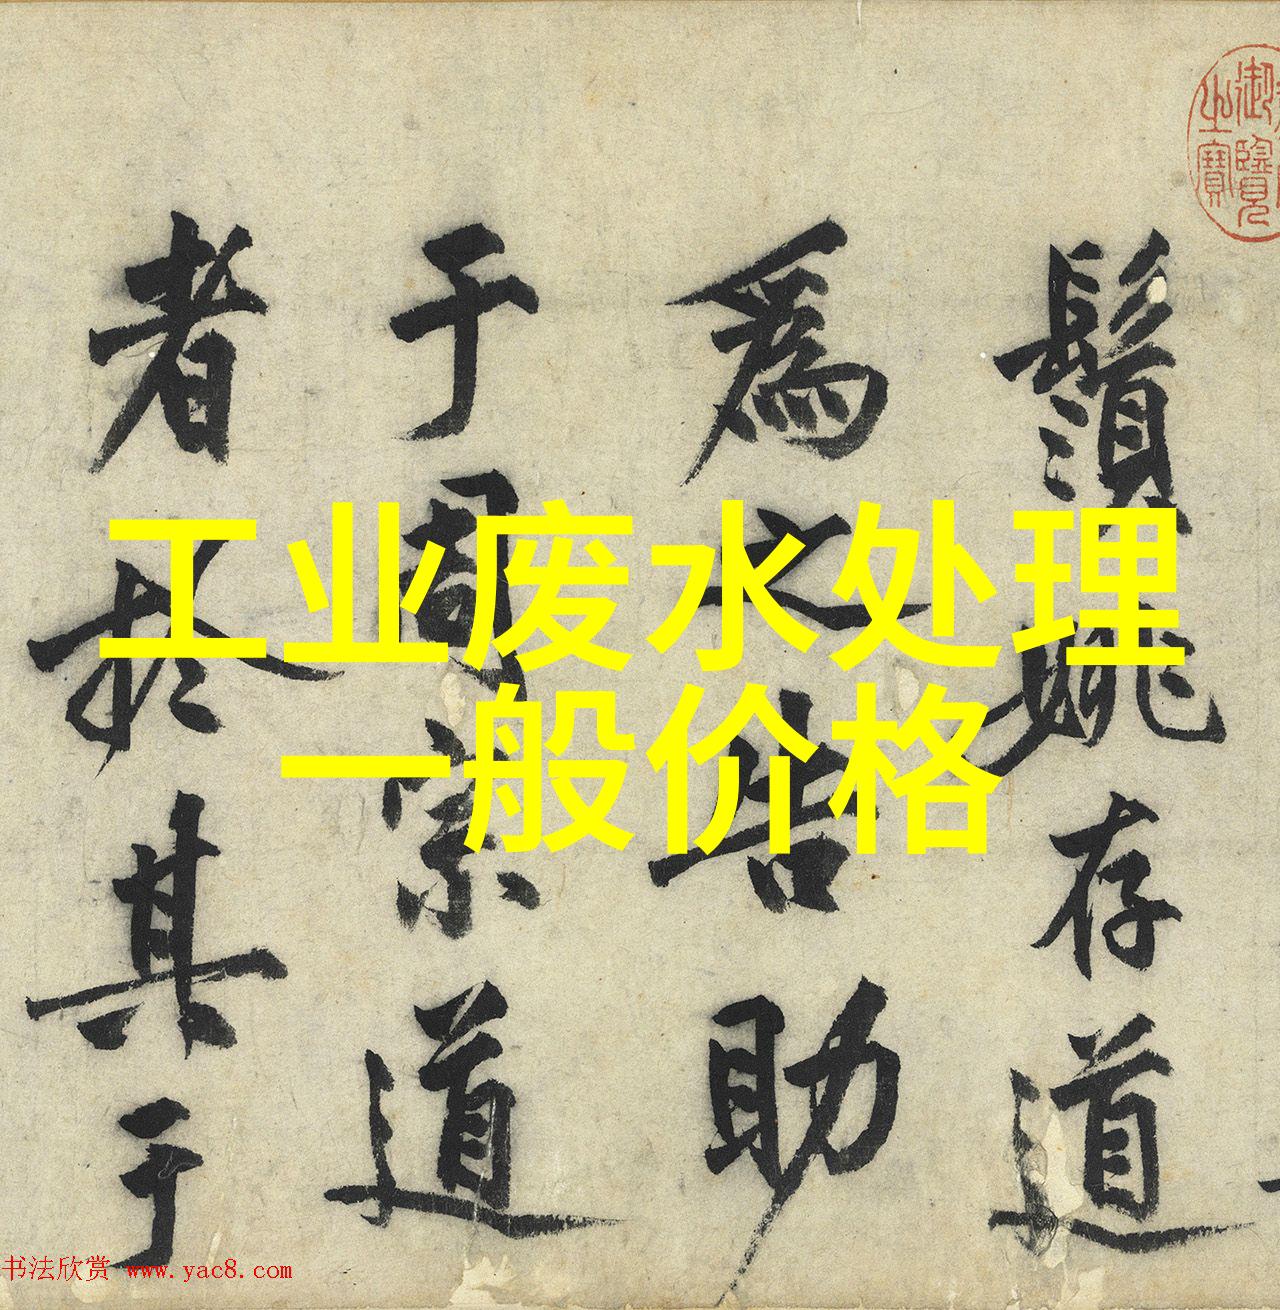 御覽
之寶
鬚姚存道
為之告助
于周宗道
者於其于
工业废水处理
一般价格
书法欣赏 www.yac8.com